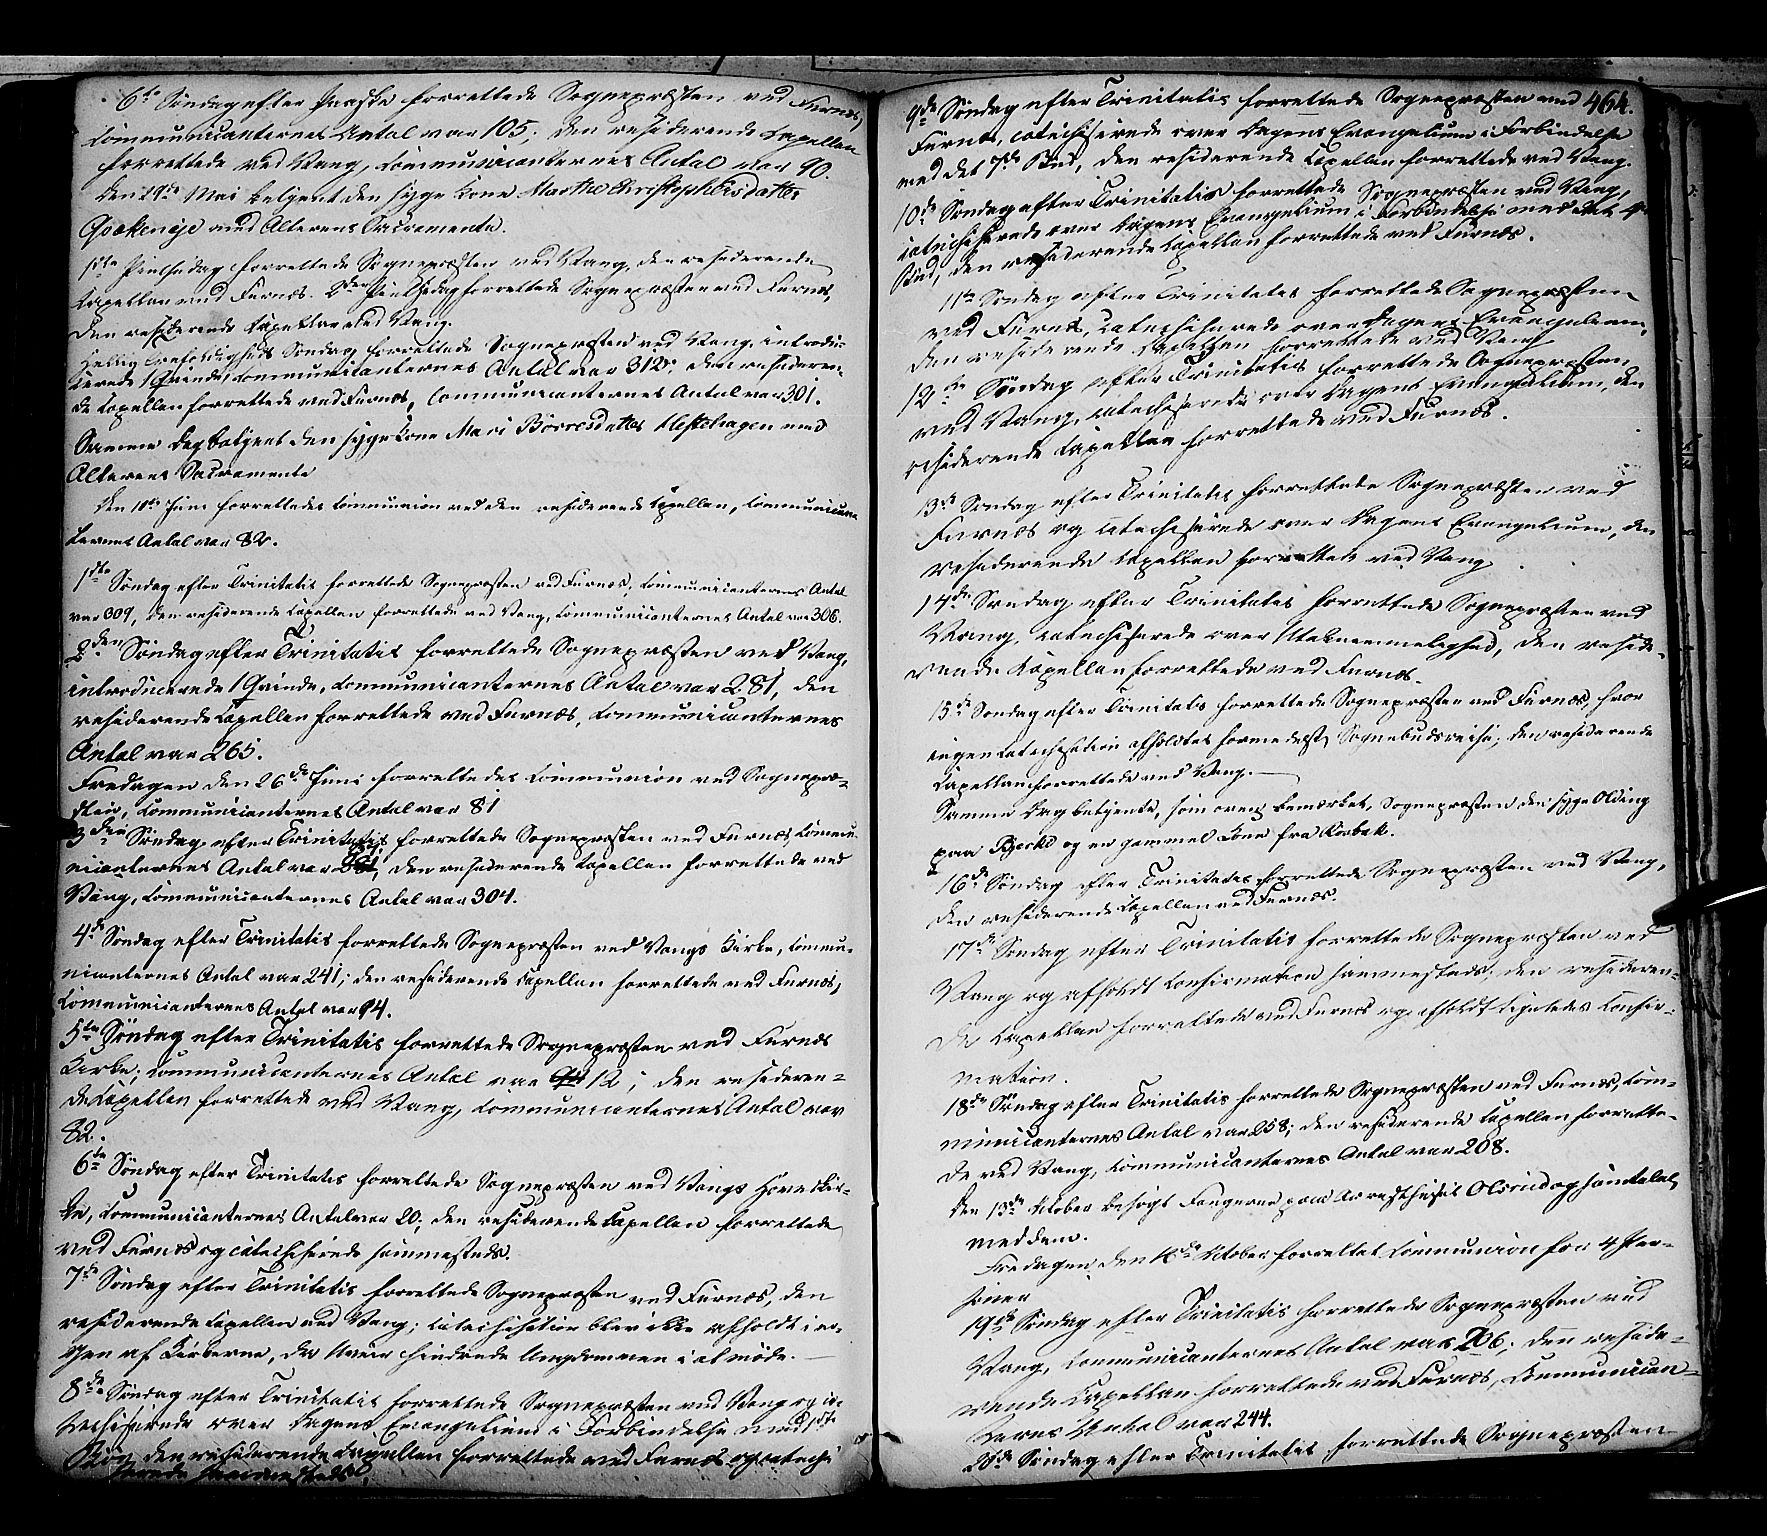 6te Søndag efter Paaske forrettede Sognepræsten ved Furnes,
Communicanternes Antal var 105; den residerende Capellan
forrettede ved Vang, Communicanternes Antal var 90.
Mai betjent den syge Kone Marthe Christophersdatter
med Alterens Sacramente.
1ste Pintsedag forrettede Sognepræsten ved Vang, den residerende
Capellan ved Furnæs. 2den Pintsedag forrettede Sognepræsten ved Furnæs,
den residerende Capellan ved Vang.
Hellig Trefoldigheds Søndag forrettede Sognepræsten ved Vang, introdu-
cerede 1 Qvinde, Communicanternes Antal var 312; den resideren-
de Capellan forrettede ved Furnæs, Communicanternes Antal var 301.
Samme Dag betjent den syge Kone Mari Børresdatter Hestehagen med
Alterens Sacramente
Den 11te Juni forrettedes Communion ved den residerende Capellan, Communican-
ternes Antal var 82.
1ste Søndag efter Trinitatis forrettede Sognepræsten ved Furnæs, Communicanternes Antal
var 309, den residerende Capellan forrettede ved Vang, Communicanternes Antal var 306.
2den Søndag efter Trinitatis forrettede Sognepræsten ved Vang,
introducerede 1 Qvinde, Communicanternes Antal var 281, den
residerende Capellan forrettede ved Furnæs, Communicanternes
Antal var 265.
Fredagen den 26de Juni forrettedes Communion ved Sognepræ-
sten, Communicanternes Antal var 81
3die Søndag efter Trinitatis forrettede Sognepræsten ved Furnæs, Commu-
nicanternes Antal var den residerende Capellan forrettede ved
Vang, Communicanternes Antal var 304.
4de Søndag efter Trinitatis forrettede Sognepræsten ved Vangs Kirke, Commu-
nicanternes Antal var 241; den residerende Capellan forrettede ved Furnæs,
Communicanternes Antal var 94.
5te Søndag efter Trinitatis forrettede Sognepræsten ved Furnæs
Kirke, Communicanternes Antal var 12; den residerende
Capellan forrettede ved Vang, Communicanternes Antal var
82.
6te Søndag efter Trinitatis forrettede Sognepræsten ved Vangs Hovedkir-
ke, Communicanternes Antal var 20; den residerende Capellan forrettede
ved Furnæs og catechiserede sammesteds.
7de Søndag efter Trinitatis forrettede Sognepræsten ved Furnæs, den
residerende Capellan ved Vang; Catechisation blev ikke afholdt i no-
gen af Kirkerne, da Uveir hindrede Ungdommen i at møde.
8de Søndag efter Trinitatis forrettede Sognepræsten ved Vang og ca-
techiserede over Dagens Evangelium i Forbindelse med 1ste
Bud, den residerende Capellan forrettede ved Furnæs og catechi
serede sammesteds.
9de Søndag efter Trinitatis forrettede Sognepræsten ved 464.
Furnæs, catechiserede over Dagens Evangelium i Forbindelse
med det 7de Bud, den residerende Capellan forrettede ved Vang.
10de Søndag efter Trinitatis forrettede Sognepræsten ved Vang,
catechiserede over Dagens Evangelium i Forbindelse med det 4de
Bud, den residerende Capellan forrettede ved Furnæs.
11te Søndag efter Trinitatis forrettede Sognepræsten
ved Furnæs, catechiserede over Dagens Evangelium,
den residerende Capellan forrettede ved Vang
12te Søndag efter Trinitatis forrettede Sognepræsten
ved Vang, catechiserede over Dagens Evangelium, den
residerende Capellan forrettede ved Furnæs.
13de Søndag efter Trinitatis forrettede Sognepræsten ved
Furnæs og catechiserede over Dagens Evangelium, den
residerende Capellan forrettede ved Vang
14de Søndag efter Trinitatis forrettede Sognepræsten ved
Vang, catechiserede over Utaknemmelighed, den reside-
rende Capellan forrettede ved Furnæs.
15de Søndag efter Trinitatis forrettede Sognepræsten ved Furnæs, hvor
ingen Catechisation afholdtes formedelst Sognebudsreise; den residerende
Capellan forrettede ved Vang.
Samme Dag betjente, som oven bemærket, Sognepræsten den syge Olding
paa Bjerke og en gammel Kone fra Korbak.
16de Søndag efter Trinitatis forrettede Sognepræsten ved Vang,
den residerende Capellan ved Furnæs.
17de Søndag efter Trinitatis forrettede Sognepræsten ved
Vang og afholdt Confirmation sammesteds; den residerende
Capellan forrettede ved Furnæs og afholdt ligeledes Confir-
mation.
18de Søndag efter Trinitatis forrettede Sognepræsten ved Furnæs, Com-
municanternes Antal var 258; den residerende Capellan forrette-
de ved Vang, Communicanternes Antal var 208.
Den 13de October besøgt Fangerne paa Arresthuset Olsrud og samtalet
med dem.
Fredagen den 16de October forrettet Communion for 4 Per-
soner
19de Søndag efter Trinitatis forrettede Sognepræsten ved
Vang, Communicanternes Antal var 206; den reside-
rende Capellan forrettede ved Furnæs, Communican-
ternes Antal var 244.
20de Søndag efter Trinitatis forrettede Sognepræsten